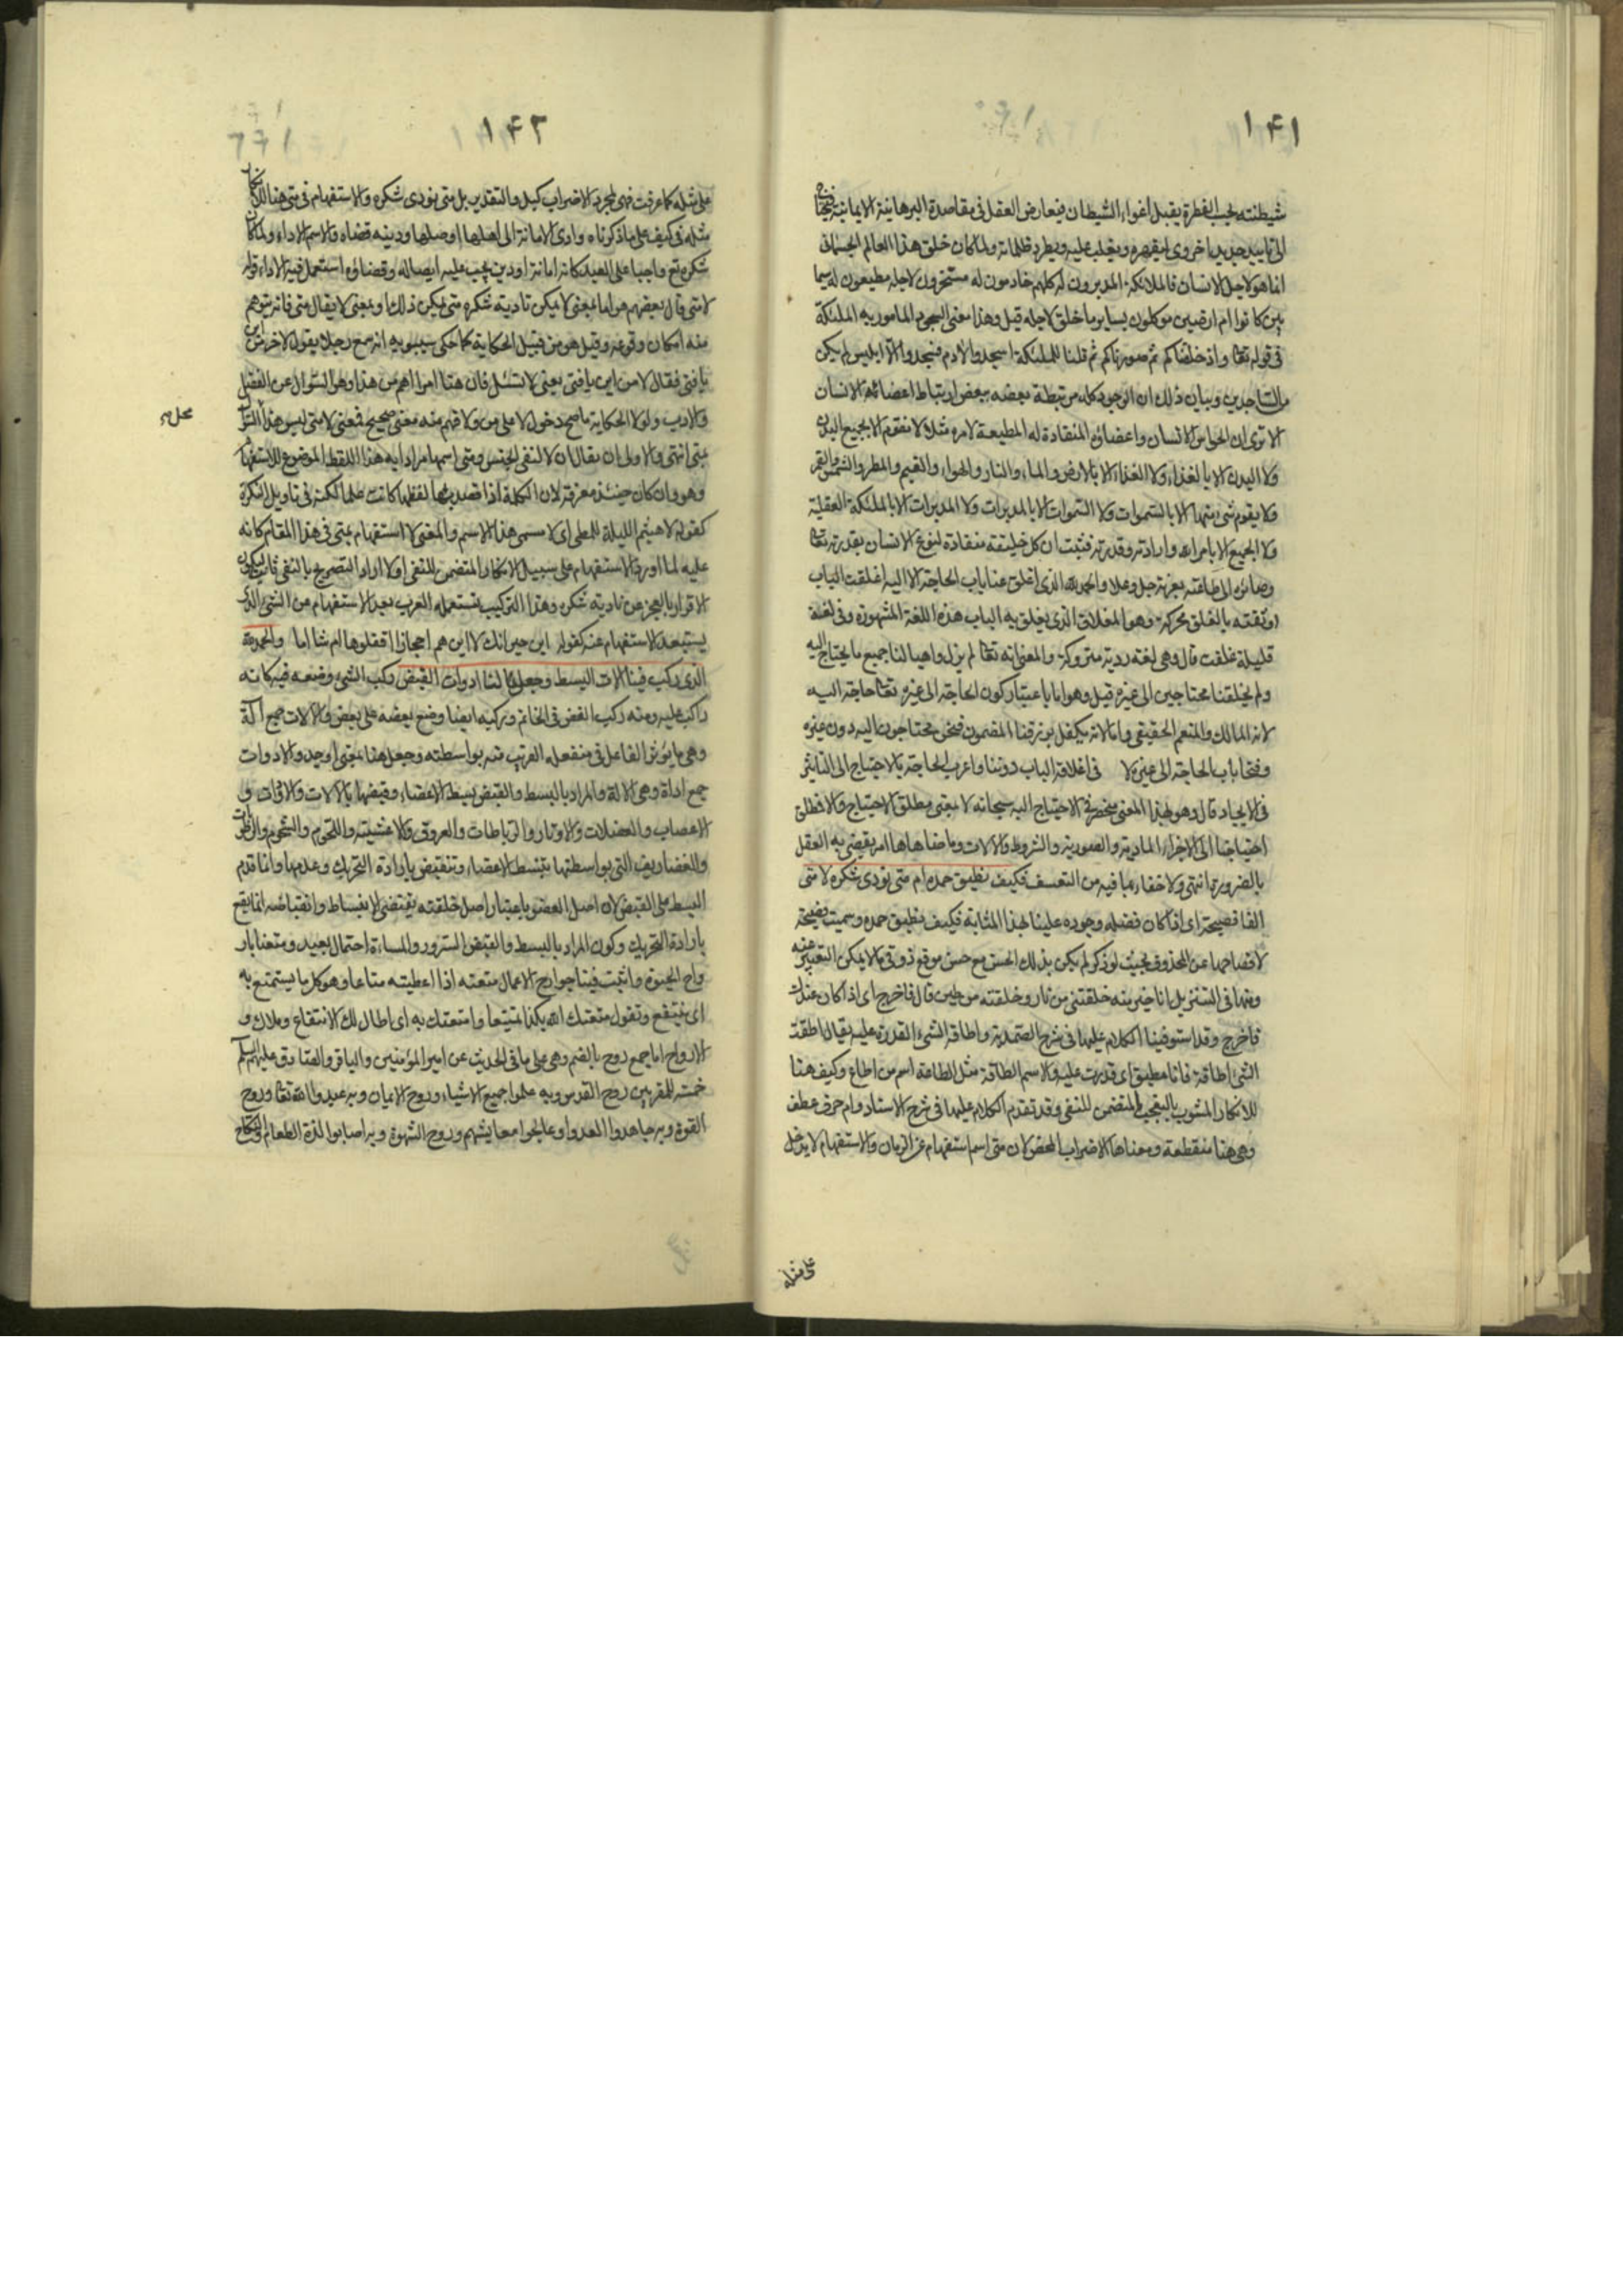 ١٤١
شيطنته بحسب الفطرة يقبل اغواء الشيطان فيعارض العقل في مقاصده البرهانية الايمانية فيحتاج
الى تاييد جديد اخروى ليقهره ويغلب عليه ويطرد ظلماته ولما كان خلق هذا العالم الجسمانى
انما هو لاجل الانسان فالملائكة المدبرون له كلهم خادمون له مسخرون لاجله مطيعون له سيما
بين كانوا ام ارضيين موكلون بساير ما خلق لاجله قيل وهذا معنى السجود المامور به الملئكة
فى قوله تعا واذ خلقناكم ثم صورناكم ثم قلنا للملئكة اسجدوا لادم فسجدوا الا ابليس لم يكن
من الساجدين وبيان ذلك ان الوجود كله مرتبطة بعضه ببعض ارتباط اعضائه الانسان
الا ترى ان الحواس الانسان واعضاؤه المنقادة له المطيعة لامره مثلا لا تقوم الا بجميع البدن
ولا البدن الا بالغذاء ولا الغذاء الا بالارض والماء والنار والهواء والغيم والمطر والشمس والقمر
فلا يقوم شئ منها الا بالسموات ولا السموات الا بالمدبرات ولا المدبرات الا بالملئكة العقلية
ولا الجميع الا بامر الله وارادته وقدرته فثبت ان كل خليقته منقادة لنوع الانسان بقدرته تعا
وصائره الى طاعته بعزته جل وعلا والحمد لله الذى اغلق عنا باب الحاجة الا اليه اغلقت الباب
اوثقته بالغلق محركة وهو المغلاق الذى يغلق به الباب هذه اللغة المشهورة وفى لغة
قليلة غلقت قال وهى لغة ردية متروكة والمعنى انه تعا لم يزل واهبا لنا جميع ما يحتاج اليه
ولم يخلقنا محتاجين الى غيره قيل وهو اما باعتبار كون الحاجة الى غيره تعا حاجة اليه
لانه المالك والمنعم الحقيقى واما لانه تكفل برزقنا المضمون فنحن محتاجون اليه دون غيره
وفتحنا باب الحاجة الى غيره لا فى اغلاقه الباب دوننا واعرب الحاجة بالاحتياج الى التاثير
فى الايجاد قال وهو بهذا المعنى منحصر فى الاحتياج اليه سبحانه لا بمعنى مطلق الاحتياج والا فمطلق
احتياجنا الى الاجزاء المادية والصورية والشروط والالات وما ضاهاها امر يقضى به العقل
بالضرورة انتهى ولا خفاء بما فيه من التعسف فكيف نطيق حمده ام متى نودى شكره لا متى
الفا فصيحة اى اذا كان فضله وجوده علينا بهذا المثابة فكيف نطيق حمده وسميت فصيحة
لافصاحها عن المحذوف بحيث لو ذكر لم يكن بذلك الحسن مع حسن موقع ذوقى لا يمكن التعبير عنه
ومنها فى التنزيل انا خير منه خلقتنى من نار وخلقته من طين قال فاخرج اى اذا كان عندك
فاخرج وقد استوفينا الكلام عليها فى شرح الصمدية واطاقة الشىء القدرة عليه يقال اطقت
الشئ اطاقة فانا مطيق اى قدرت عليه والاسم الطاقة مثل الطاعة اسم من اطاع وكيف هنا
للانكار المشوب بالتعجب المتضمن للنفى وقد تقدم الكلام عليها فى شرح الاسناد وام حرف عطف
وهى هنا منقطعة ومعناها الاضراب المحض لان متى اسم استفهام عن الزمان والاستفهام لا يدخل
على مثله
١٤٢
على مثله كما عرفت فهى لمجرد الاضراب كبل والتقدير بل متى نودى شكره والاستفهام فى متى هنا للانكار
مثله فى كيف على ما ذكرناه وادى الامانة الى اهلها اوصلها ودينه قضاه والاسم الاداء ولما كان
شكره تع واجبا على العبد كانه امانة او دين يجب عليه ايصاله وقضاؤه استعمل فيه الاداء قوله
لا متى قال بعضهم من اما بمعنى لا يمكن تادية شكره متى يمكن ذلك او بمعنى لا يقال متى فانه يتوهم
منه امكان وقوعه وقيل هو من قبيل الحكاية كما حكى سيبويه انه سمع رجلا يقول لاخر من اين
يا فتى فقال لا من اين يا فتى يعنى لا تسئل فان هنا امرا اهم من هذا وهو السؤال عن الفضل
والادب ولولا الحكاية ما صح دخول لا على من ولا فهم منه معنى صحيح فمعنى لا متى ليس هذا السؤال
محل
بمتى انتهى والاولى ان يقال ان لا لنفى الجنس ومتى اسمها مرادا به هذا اللفظ الموضوع للاستفهام
وهو وان كان حينئذ معرفة لان الكلمة اذا قصد بها لفظها كانت علما لكنه فى تاويل النكرة
كقوله لا هيثم الليلة للمطى اى لا مسمى هذا الاسم والمعنى لا استفهام بمتى فى هذا المقام كانه
عليه لما اورد الاستفهام على سبيل الانكار المتضمن للنفى اولا اراد التصريح بالنفى ثانيا ليكون
الاقرار بالعجز عن تادية شكره وهذا التركيب تستعمله العرب بعد الاستفهام من الشئ الذى
يستبعد الاستفهام عنه كقوله اين جيرانك لا اين هم احجازا اقفلوها ام شاما والحمد لله
الذى ركب فينا الات البسط وجعل لنا ادوات القبض ركب الشئ وضعه فيه كانه
راكب عليه ومنه ركب الفص فى الخاتم وتركيبه ايضا وضع بعضه على بعض والالات جمع آلة
وهى ما يؤثر الفاعل فى منفعله القريب منه بواسطته وجعل هنا بمعنى اوجد والادوات
جمع اداة وهى الالة والمراد بالبسط والقبض بسط الاعضاء وقبضها بالالات والادوات و
الاعصاب والعضلات والاوتار والرباطات والعروق والاغشية واللحوم والشحوم والرطوبات
والغضاريف التى بواسطتها تنبسط الاعضاء وتنقبض بارادة التحريك وعدمها وانما قدم
البسط على القبض لان اصل العضو باعتبار اصل خلقته يقتضى الانبساط وانقباضه انما يقع
بارادة التحريك وكون المراد بالبسط والقبض السرور والمساءة احتمال بعيد ومتعنا بار
واح الحيوة واثبت فينا جوارح الاعمال متعته اذا اعطيته متاعا وهو كل ما يستمتع به
اى ينتفع وتقول متعتك الله بكذا تمتيعا وامتعتك به اى اطال لك الانتفاع وملاك و
الارواح اما جمع روح بالضم وهى على ما فى الحديث عن امير المؤمنين والباقر والصادق عليهم السلم
خمسة للمقربين روح القدس وبه علموا جميع الاشياء وروح الايمان وبه عبدوا الله تعا وروح
القوة وبه جاهدوا العدو وعالجوا معايشهم وروح الشهوة وبه اصابوا لذة الطعام والنكاح